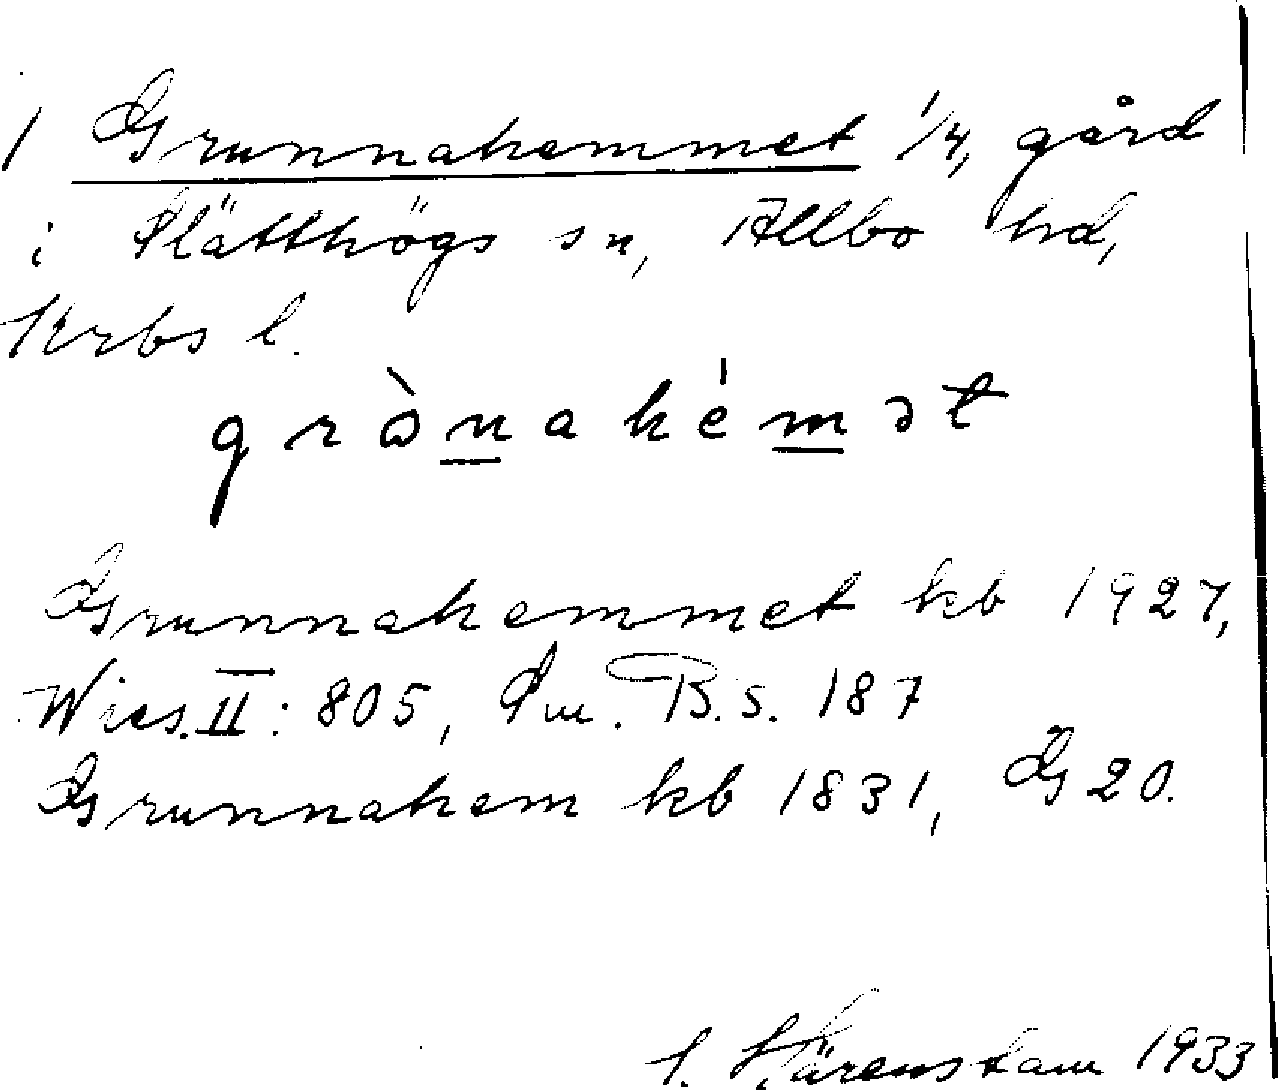 1 Grunnahemmet 1/4, gård
i Slätthögs sn, Allbo hd,
Krbs l.
grònahémət
Grunnahemmet kb 1927,
Wies. II: 805, Sm. B. s. 187
Grunnahem kb 1831, G 20.
Härenstam 1933